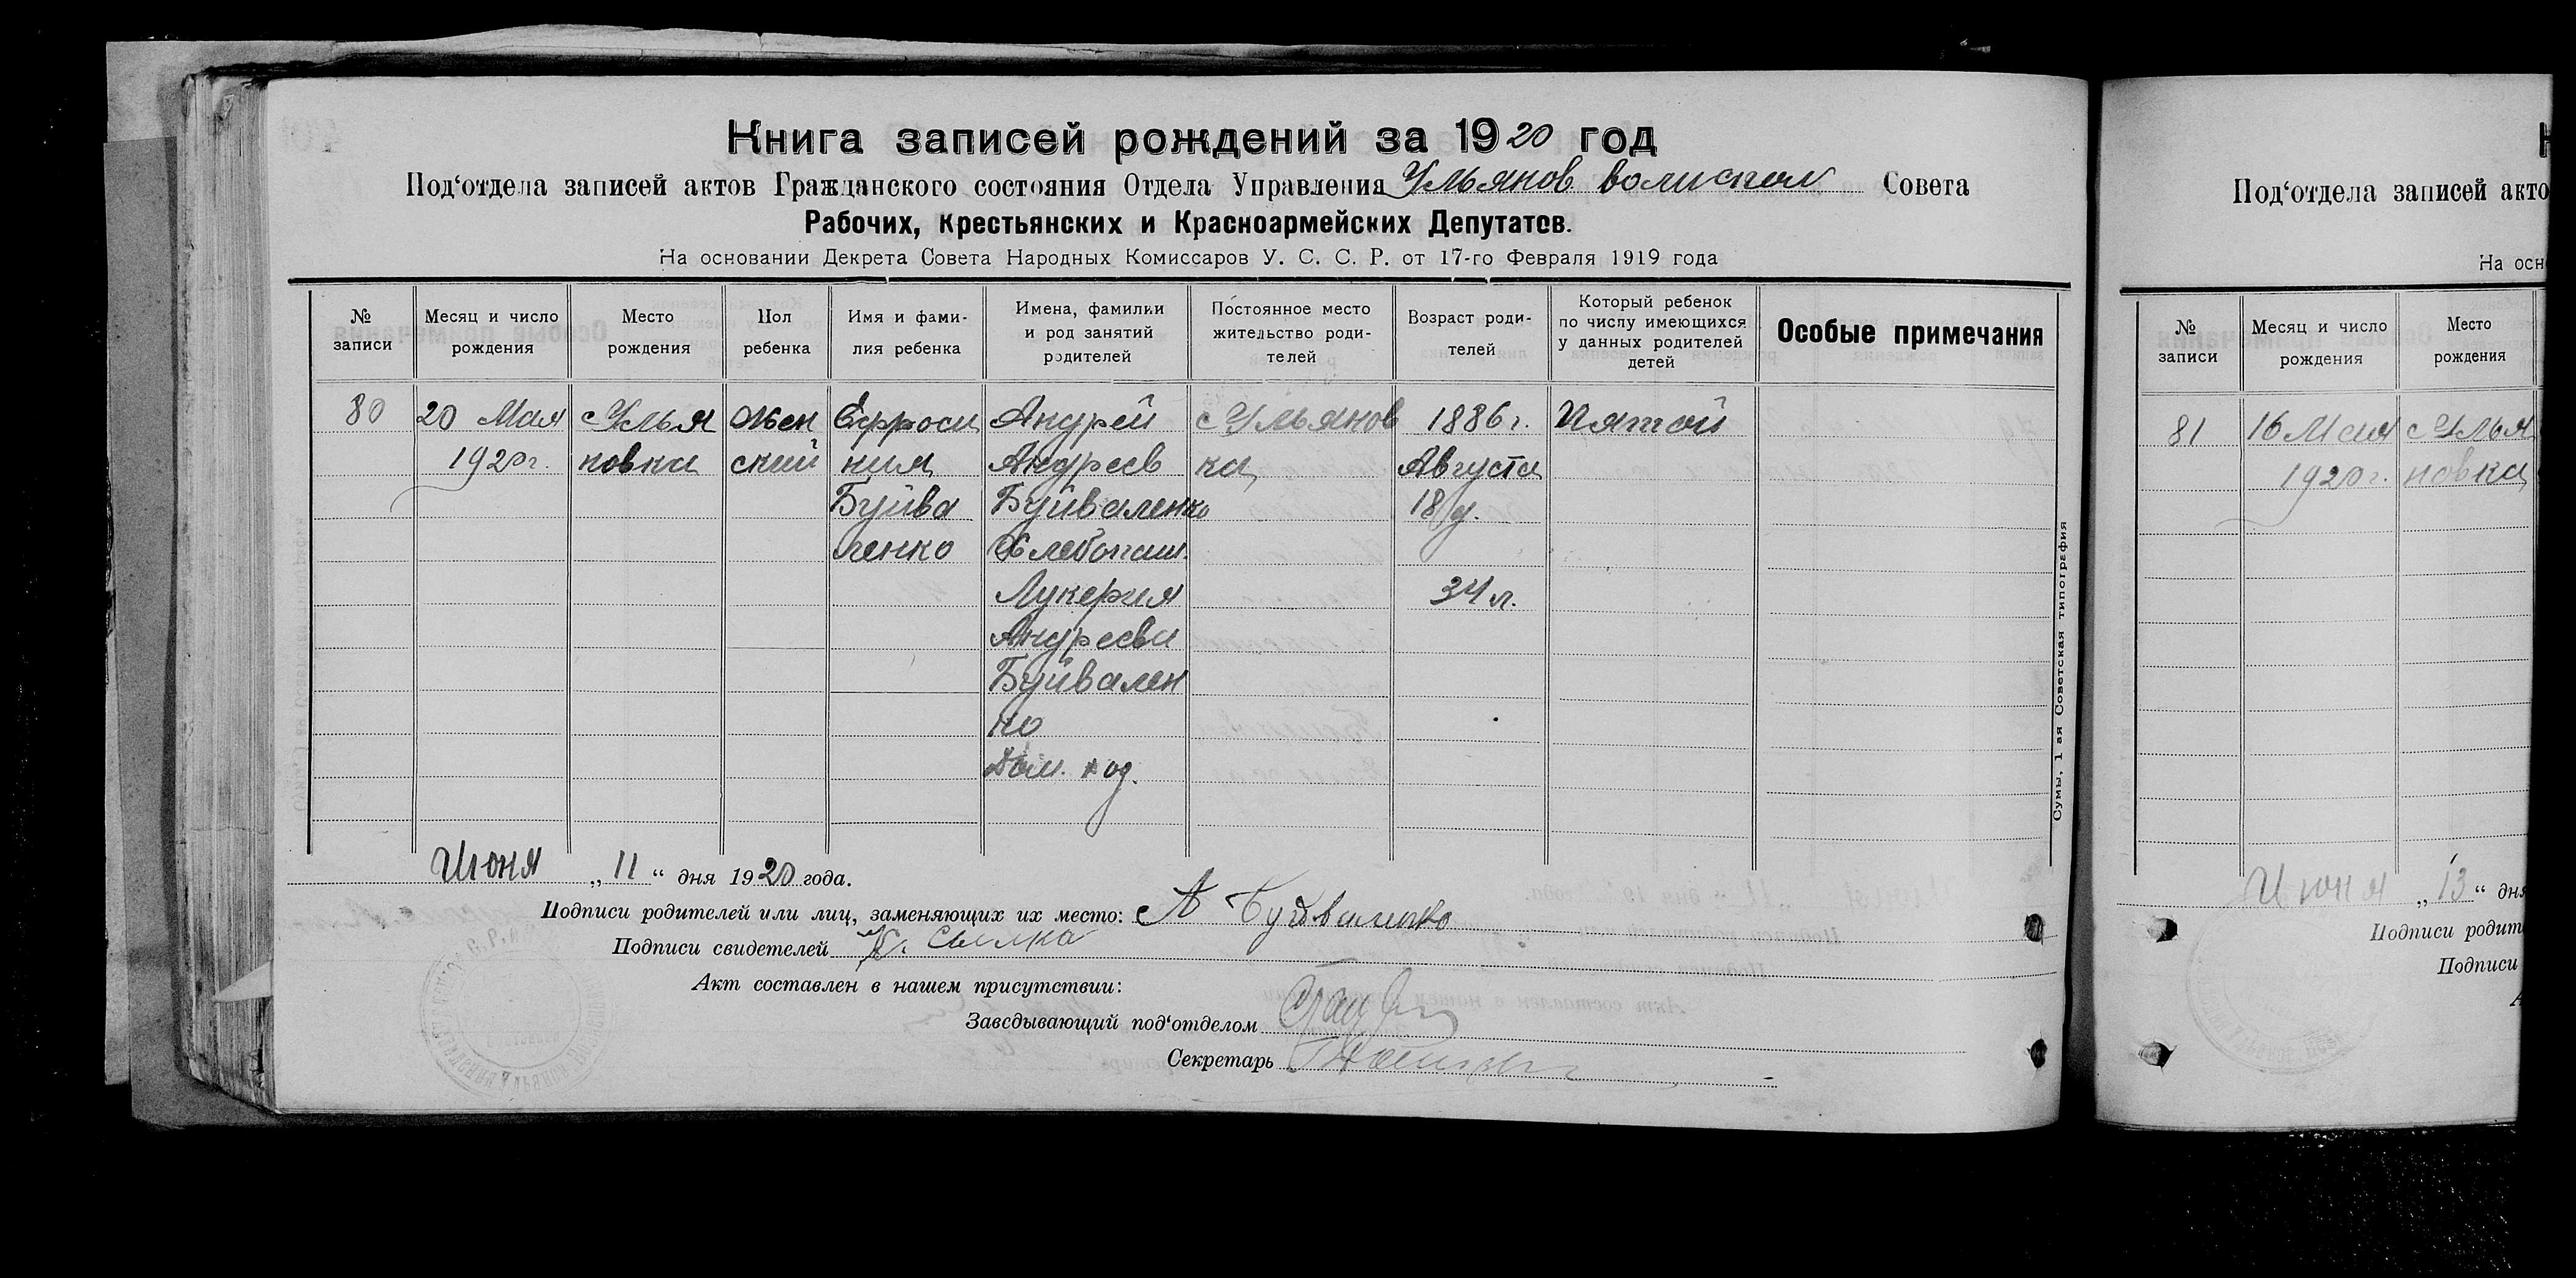 Книга записей рождений за 1920 год
Под‘отдела записей актов Гражданского состояния Отдела Управления Ульянов волиспол Совета
Рабочих, Крестьянских и Красноармейских Депутатов.
На основании Декрета Совета Народных Комиссаров У. С. С. Р. от 17-го Февраля 1919 года
№ записи
Месяц и число рождения
Место рождения
Пол ребенка
Имя и фами-
лия ребенка
Имена, фамилии
и род занятий
родителей
Постоянное место
жительство роди-
телей
Возраст роди-
телей
Который ребенок
по числу имеющихся
у данных родителей
детей
Особые примечания
80
20 Мая
1920г.
с Улья
новка
Жен
ский
Ефроси
ния
Буйва
ленко
Андрей
Андреев
Буйваленко
Хлебопаш.
Лукерия
Андреева
Буйвален
ко
Дом.
с Ульянов
ка
1886г.
Августа
18 д.
34 л.
Пятой
Июня „11“ дня 1920 года.
Подписи родителей или лиц, заменяющих их место: А Буйваленко
Подписи свидетелей
Акт составлен в нашем присутствии:
Заведывающий под‘отделом
Секретарь
Сумы, 1 ая Советская типография
Под‘отдела записей акто
На осн
№
записи
Месяц и число
рождения
Место
рождения
81
16 Мая
1920г.
с Улья
новка
Июня „13“ дня
Подписи родит
Подписи